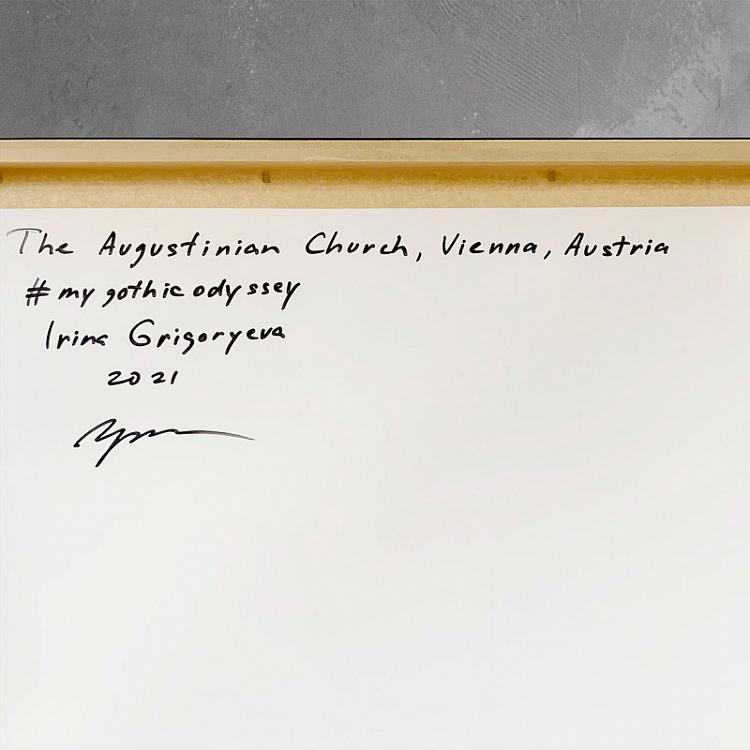 The Augustinian Church, Vienna, Austria
# my gothic odyssey
Irina Grigoryeva
2021